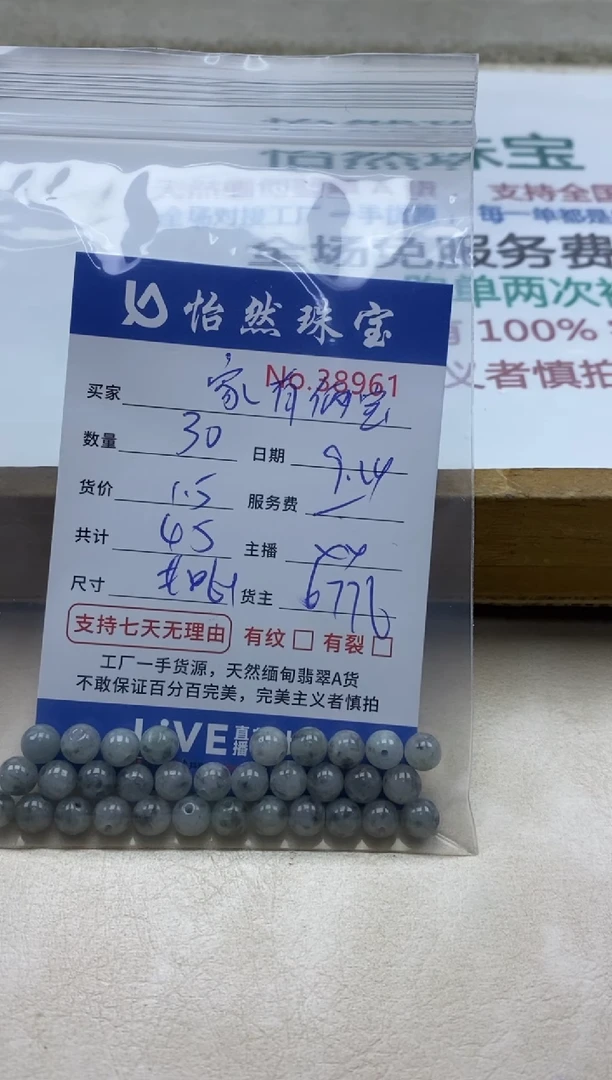 怡然珠宝
支持全国
每一单都是
全场免服务费
单两次补
100%
义者慎拍
怡然珠宝
No.38961
买家 家有俩宝
数量 30 日期 9.24
货价 1.5 服务费
共计 45 主播 XY
尺寸 货主 6776
支持七天无理由 有纹 有裂
工厂一手货源，天然缅甸翡翠A货
不敢保证百分百完美，完美主义者慎拍
LIVE 直播